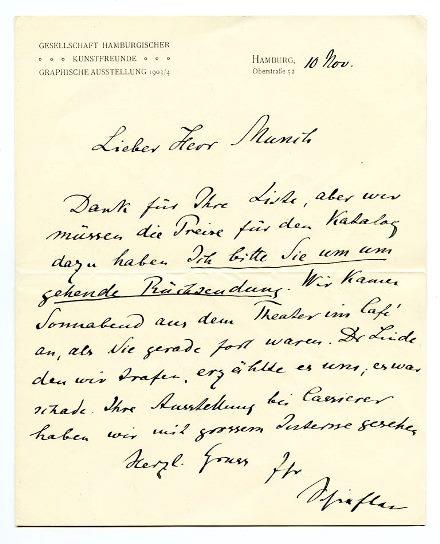 GESELLSCHAFT HAMBURGISCHER
° ° ° KUNSTFREUNDE ° ° °
GRAPHISCHE AUSSTELLUNG 1903/4
HAMBURG, 10 Nov.
Oberstraße 52
Lieber Herr Munch
Dank für Ihre Liste, aber wir
müssen die Preise für den Katalog
dazu haben Ich bitte Sie um um
gehende Rücksendung. Wir kamen
Sonnabend aus dem Theater ins Café
an, als Sie gerade fort waren. Dr Linde
den wir trafen, erzählte es uns, es war
schade. Ihre Ausstellung bei Cassierer
haben wir mit grossem Interesse gesehen
Herzl. Gruss Ihr
Schiefler